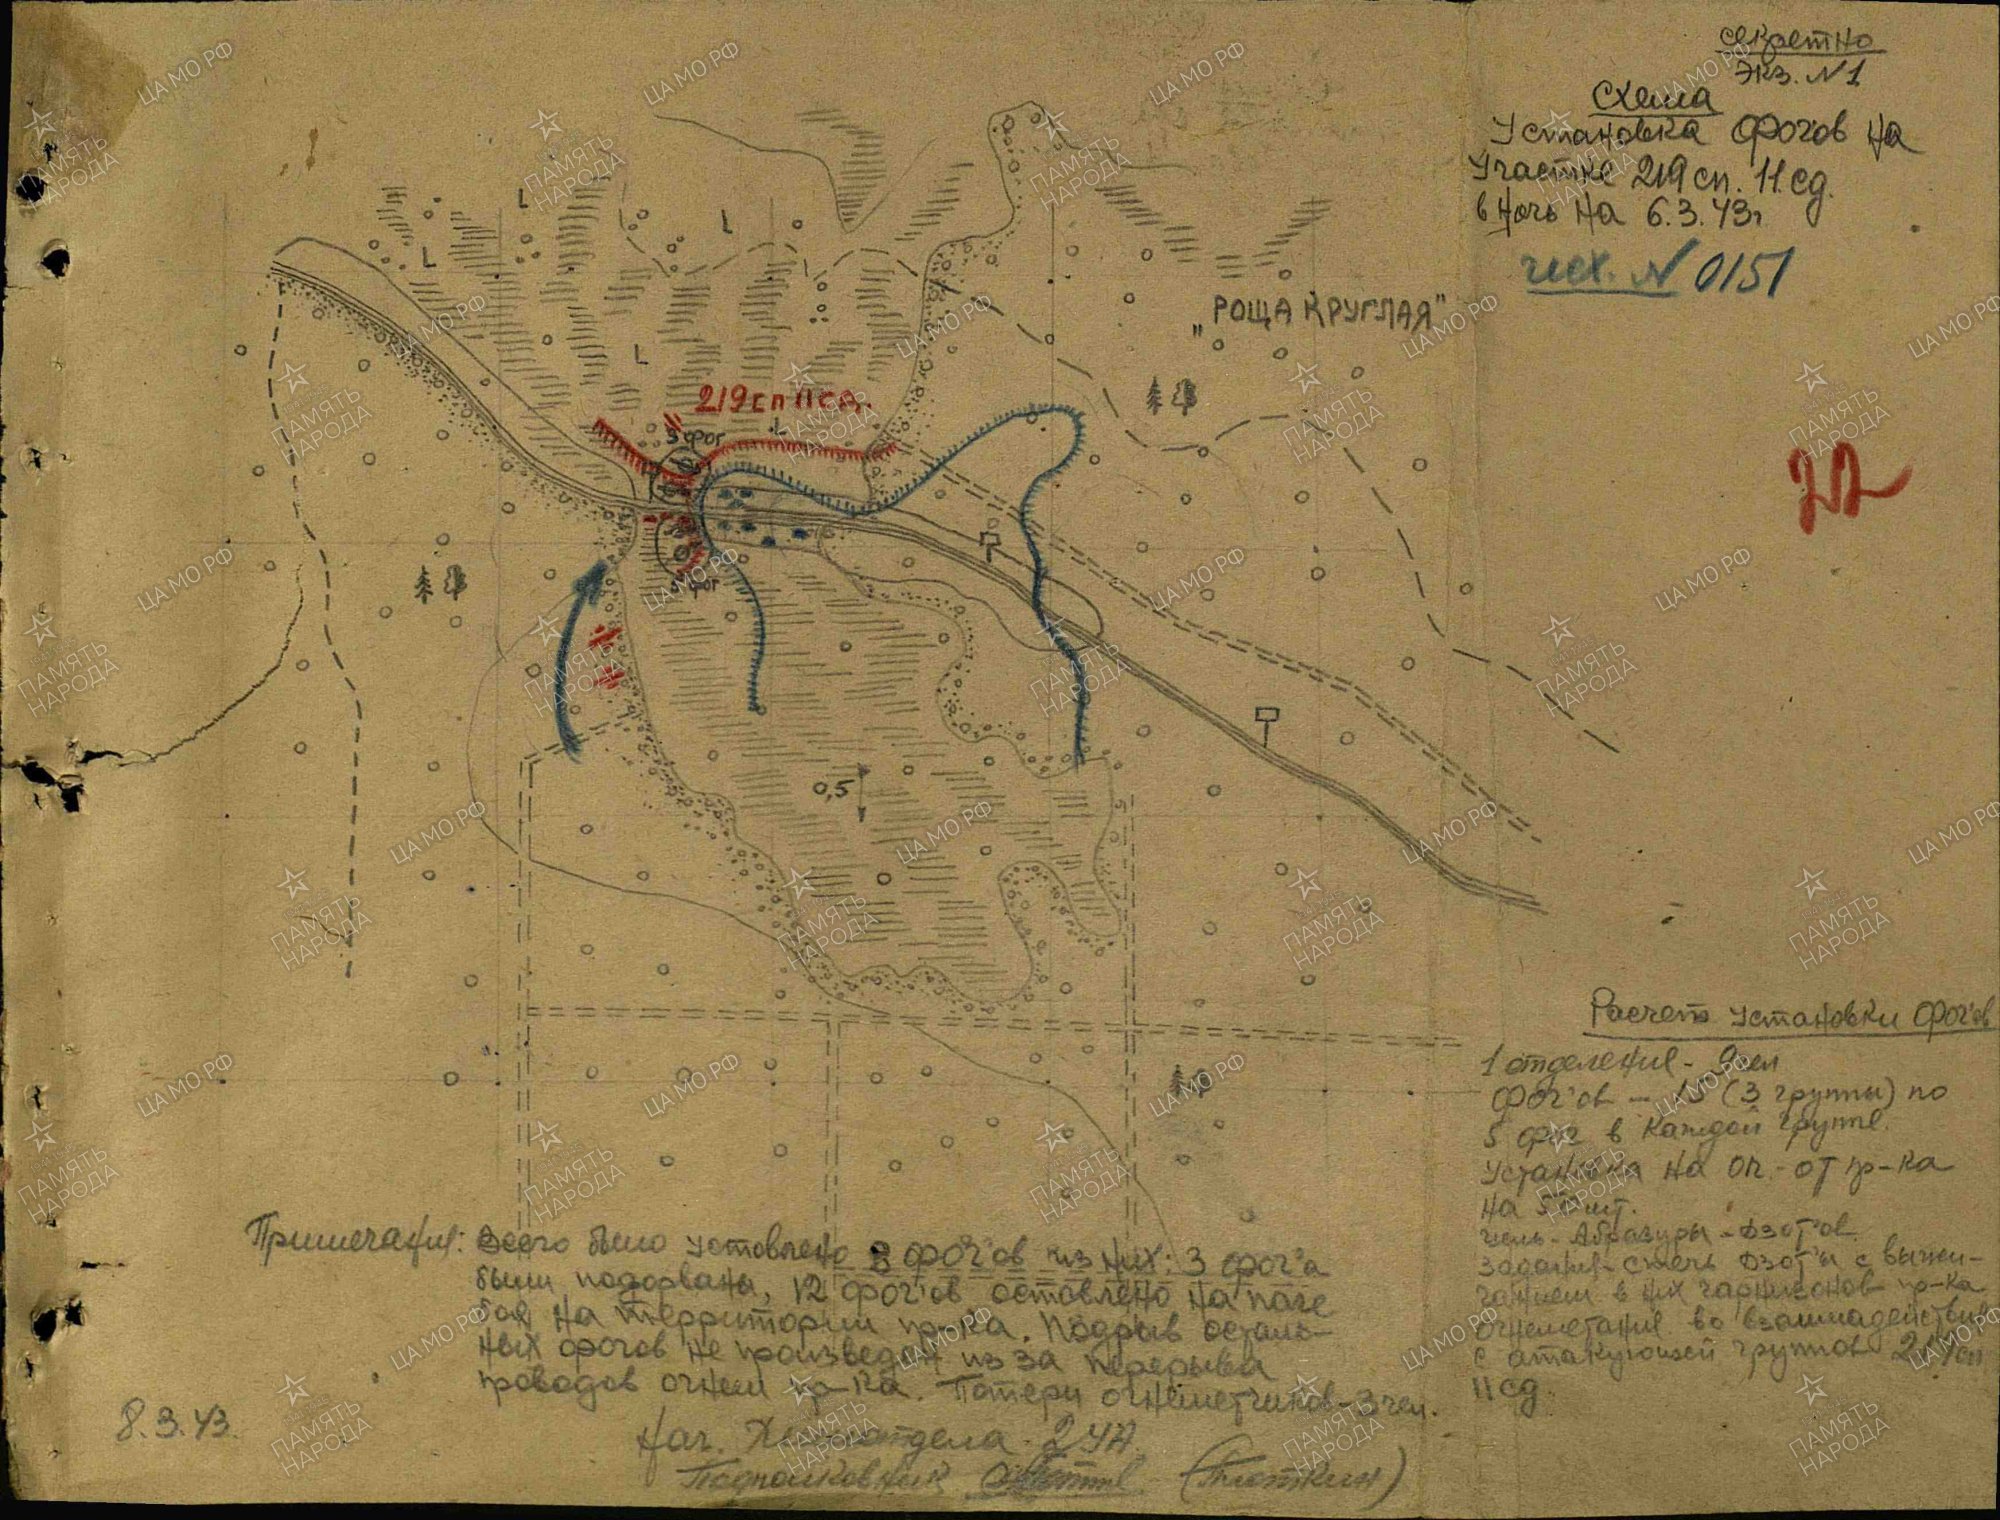 секретно
Экз. N 1
Схема
Установка фогов на
участке 219 сп. 11 сд.
в ночь на 6.3.43г
исх. N 0151
"РОЩА КРУГЛАЯ"
219 сп 11 сд.
5 фог
5 фог
0,5
22
Расчет установки фог'ов
1 отделение - 9 чел
Фог'ов - 15 (3 группы) по
5 фог в каждой группе.
Установка на оп. - от пр-ка
на
цель - Абразуры - дзот'ов
задания - сжечь дзот'ы с выжи-
ганием в них гарнизонов пр-ка
огнеметание во взаимодействии
с атакующей группов 219 сп
11 сд.
Примечание: Всего было устовлено фог'ов из них: 3 фог'а
были подорваны, 12 фог'ов оставлено на поле
боя на территории пр-ка. Подрыв осталь-
ных фогов не произведен из за перерыва
проводов огнем пр-ка. Потери огнеметчиков - 3 чел.
8.3.43
Нач. Химотдела 2 УА
Подполковник (Плоткин)
ПАМЯТЬ НАРОДА
ЦА МО РФ